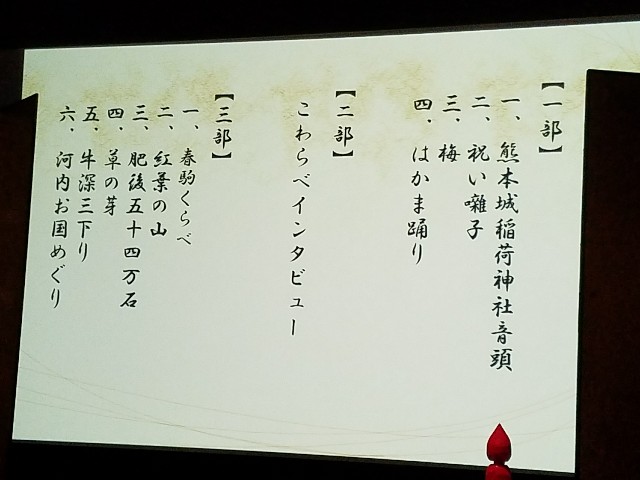 【一部】
一、熊本城稲荷神社音頭
二、祝い囃子
三、梅
四、はかま踊り
【二部】
こわらべインタビュー
【三部】
一、春駒くらべ
二、紅葉の山
三、肥後五十四万石
四、草の芽
五、牛深三下り
六、河内お国めぐり